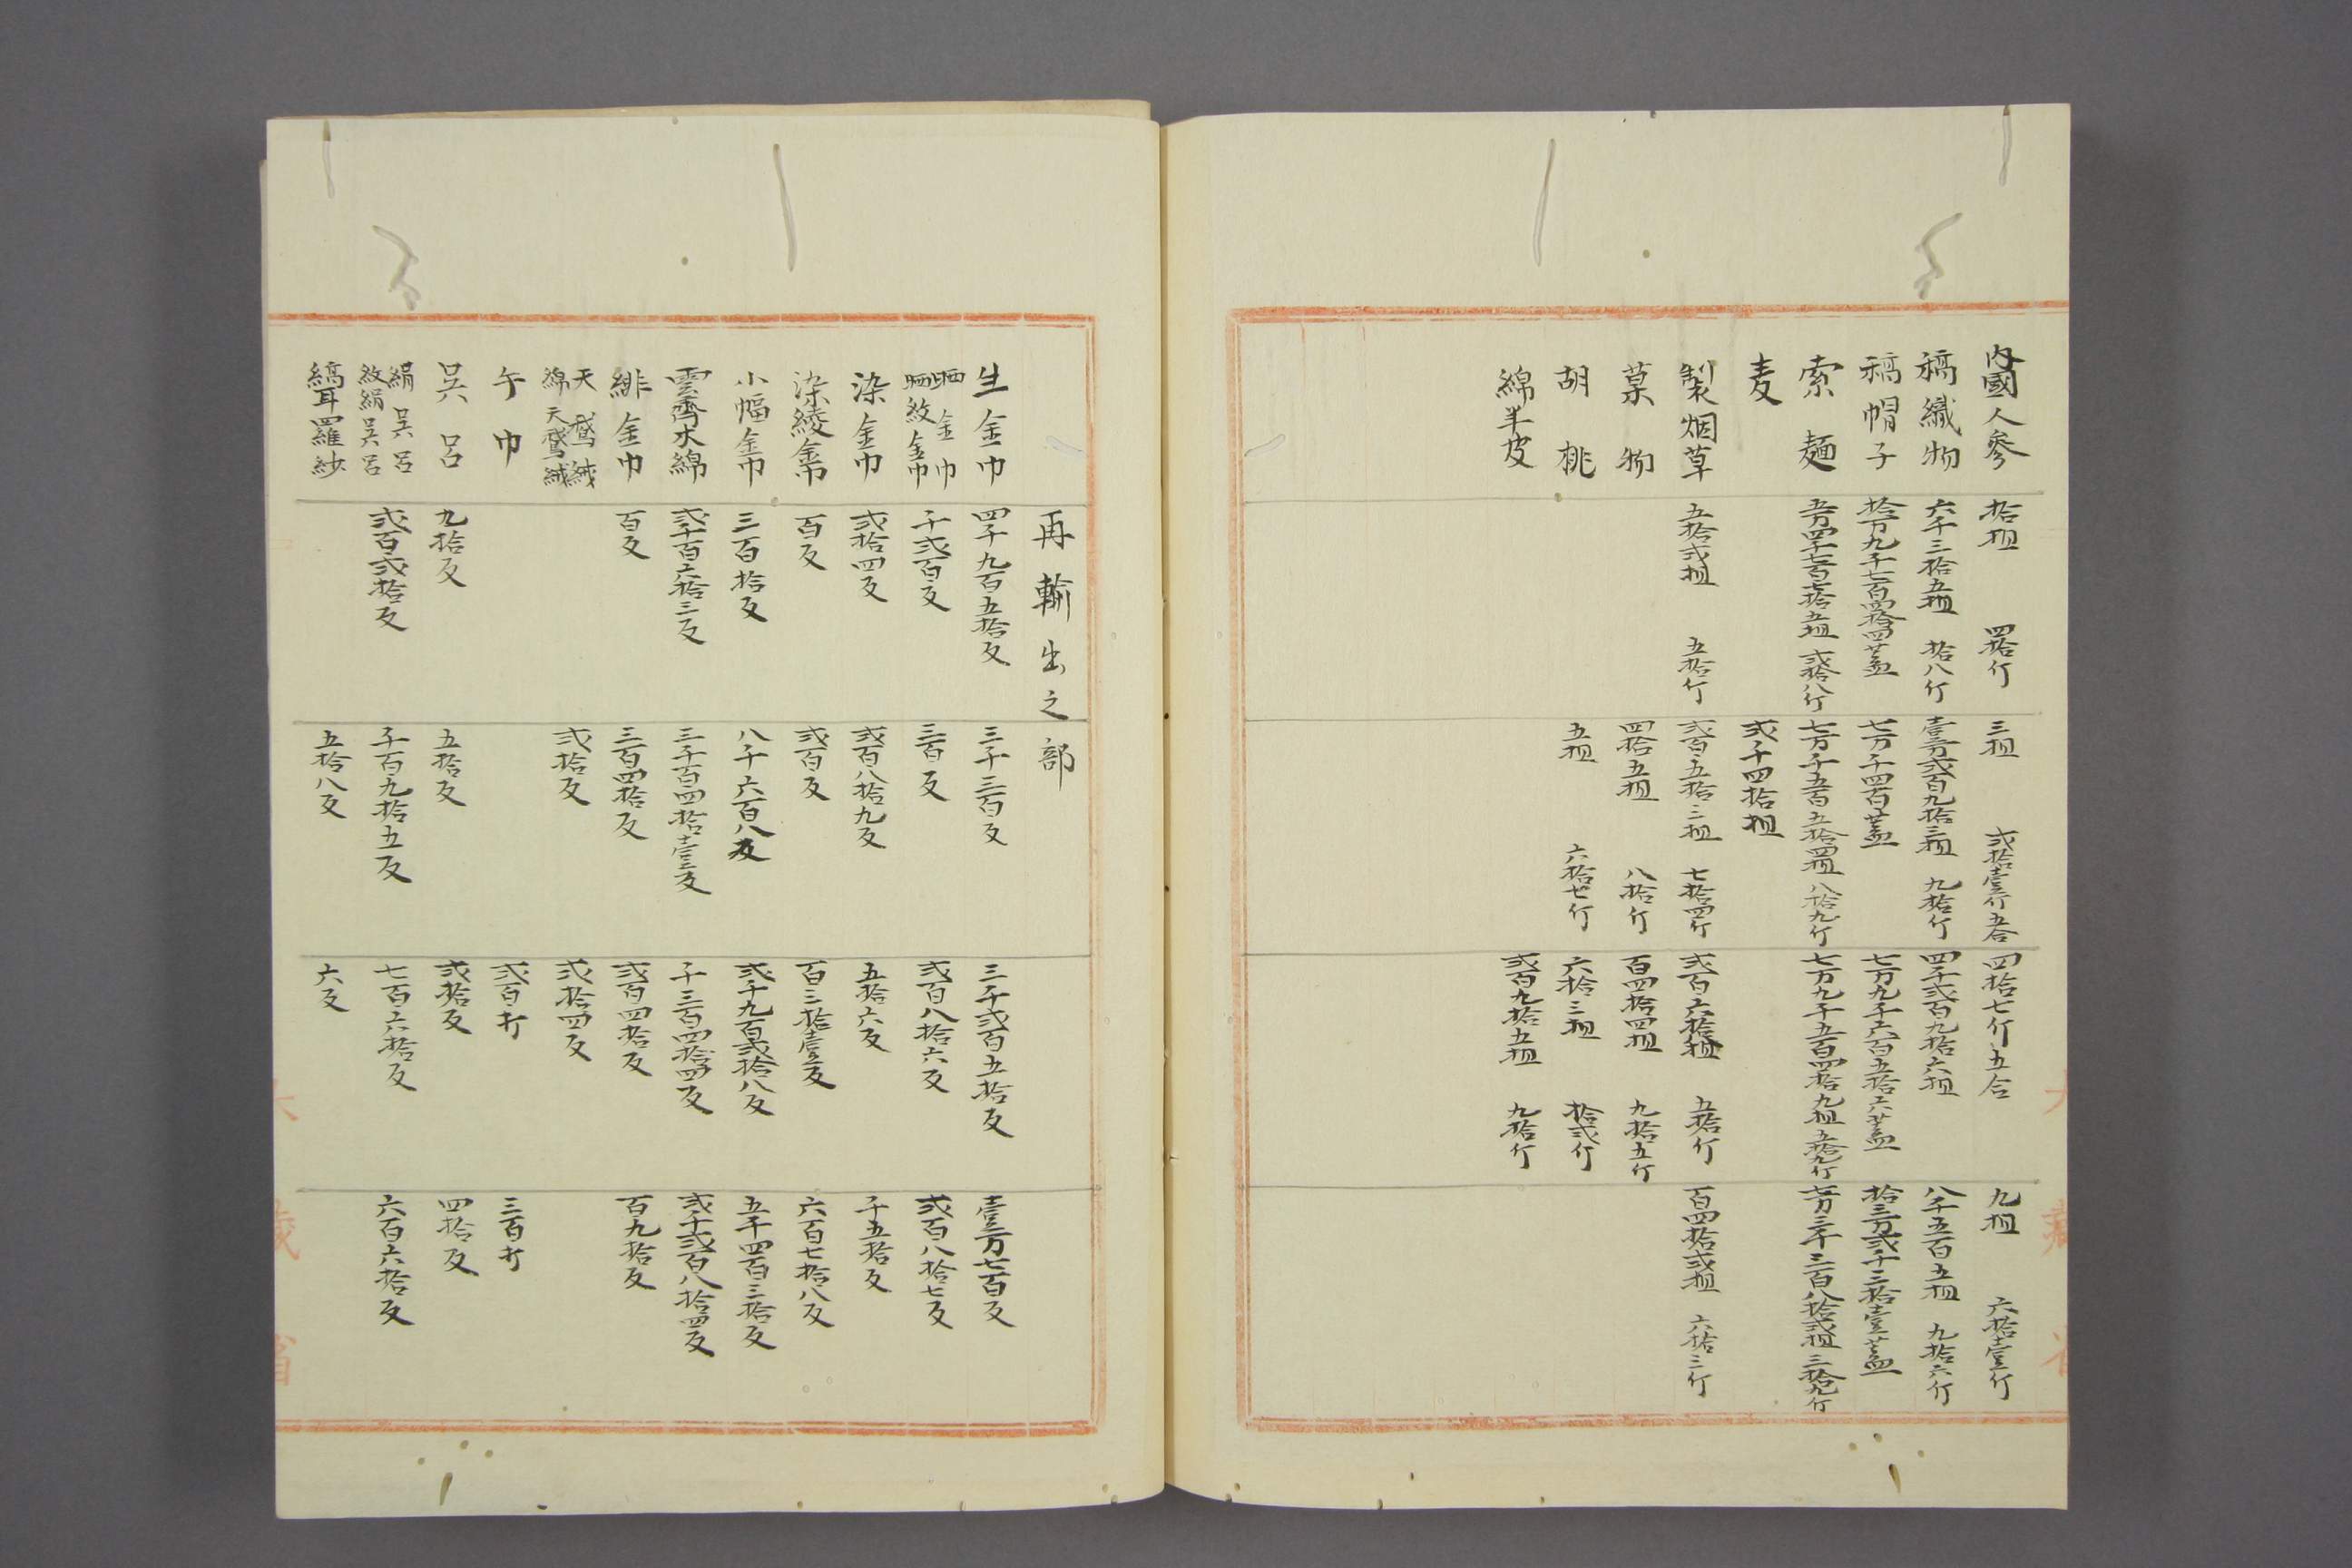 内國人參 拾担 四拾斤 三担 弐拾壹斤五合 四拾七斤五合 九担 六拾壹斤
稿織物 六千三拾五担 拾八斤 壹万弐百九拾三担 九拾斤 四千弐百九拾六担 八千五百五担 九拾六斤
稿帽子 拾万九千七百四拾四蓋 七万千四百蓋 七万九千六百五拾六蓋 拾三万弐千三拾壹蓋
索麺 五万四千七百七拾五担 弐拾八斤 七万千五百五拾四担 八拾九斤 七万九千五百四拾九担 五拾九斤 七万三千三百八拾弐担 三拾九斤
麦 弐千四拾担
製烟草 五拾弐担 五拾斤 弐百五拾三担 七拾四斤 弐百六拾担 五拾斤 百四拾弐担 六拾三斤
菓物 四拾五担 八拾斤 百四拾四担 九拾五斤
胡桃 五担 六拾七斤 六拾三担 拾弐斤
綿羊皮 弐百九拾五担 九拾斤
再輸出之部
生金巾 四千九百五拾反 三千三百反 三千弐百五拾反 壹万七百反
晒金巾
晒紋金巾 千弐百反 三百反 弐百八拾六反 弐百八拾七反
染金巾 弐拾四反 弐百八拾九反 五拾六反 千五拾反
染綾金巾 百反 弐百反 百三拾壹反 六百七拾八反
小幅金巾 三百拾反 八千六百八反 弐千九百弐拾八反 五千四百三拾反
雲齊木綿 弐千百六拾三反 三千百四拾壹反 千三百四拾四反 弐千弐百八拾四反
緋金巾 百反 三百四拾反 弐百四拾反 百九拾反
天鵞絨
綿天鵞絨 弐拾反 弐拾四反
午巾 弐百打 三百打
呉呂 九拾反 五拾反 弐拾反 四拾反
絹呉呂
紋絹呉呂 弐百弐拾反 千百九拾五反 七百六拾反 六百六拾反
縞耳羅紗 五拾八反 六反
大藏省